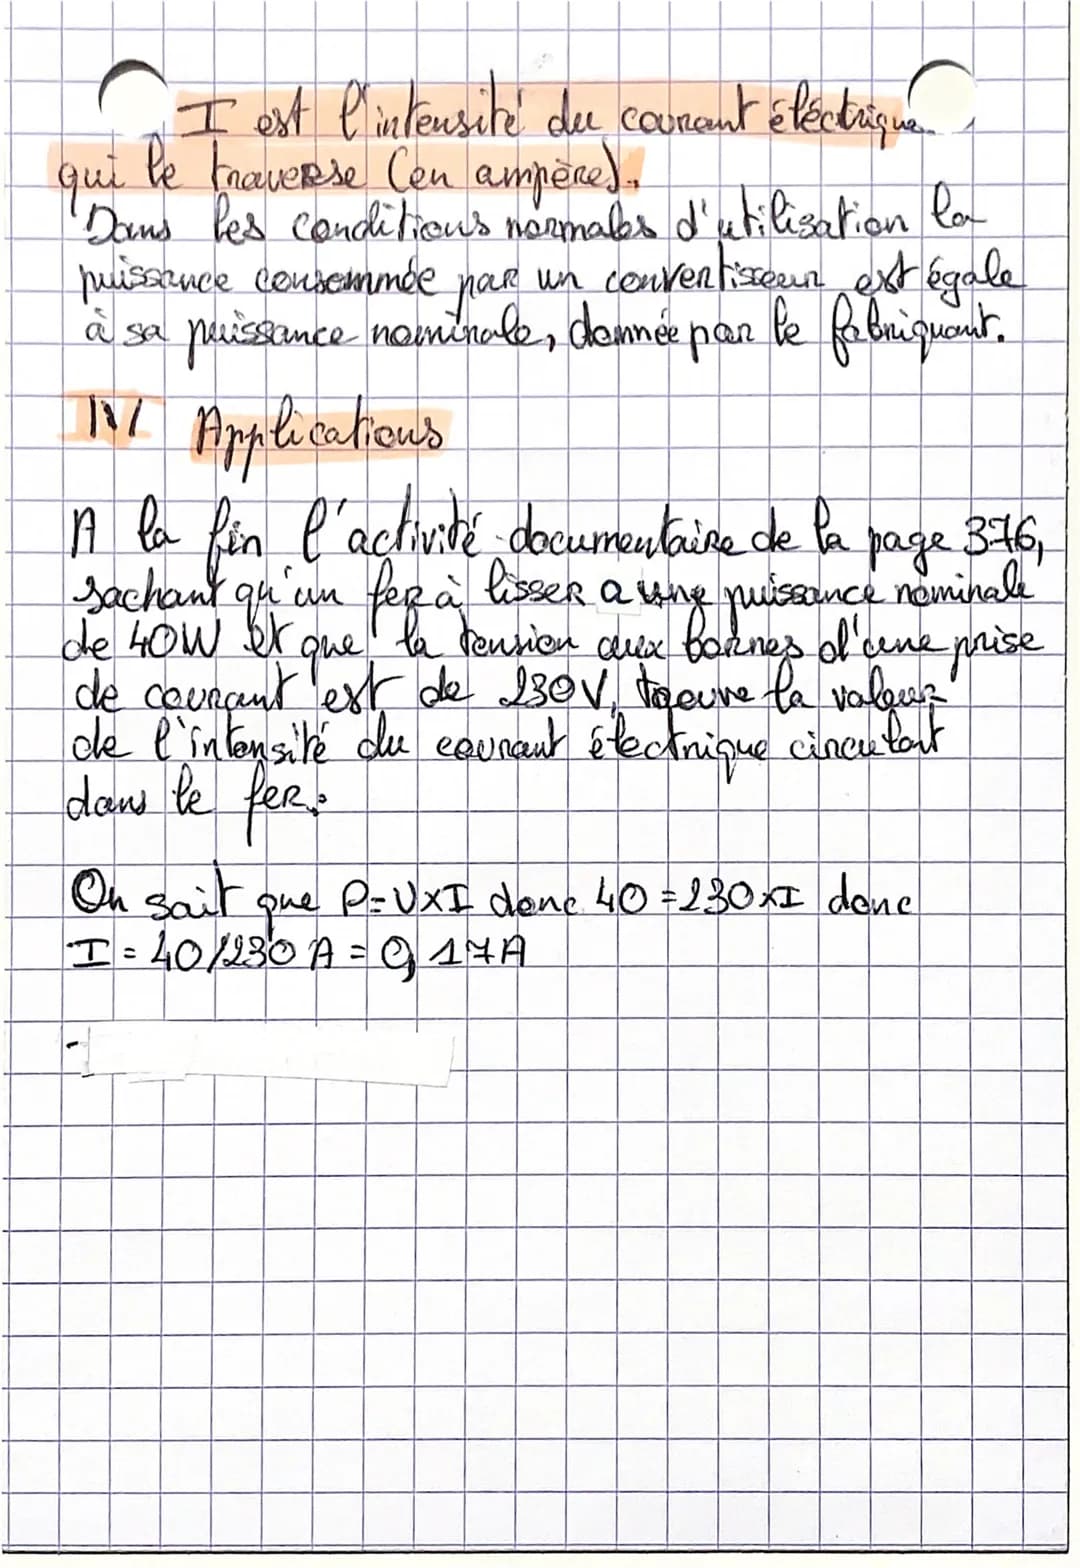 I est l'intensité du courant éléctrique
qui le traverse (en ampère).
Dans les conditions normales d'utilisation la
puissance consommée par un convertisseur est égale
à sa puissance nominale, donnée par le fabriquant.
IV/ Applications
A la fin l'activité documentaire de la page 376,
sachant qu'un fer à lisser a une puissance nominale
de 40W et que la tension aux bornes d'une prise
de courant est de 230V, trouve la valeur
de l'intensité du courant électrique circulant
dans le fer.
On sait que P=U×I donc 40=230×I donc
I = 40/230 A = 0,17A
-